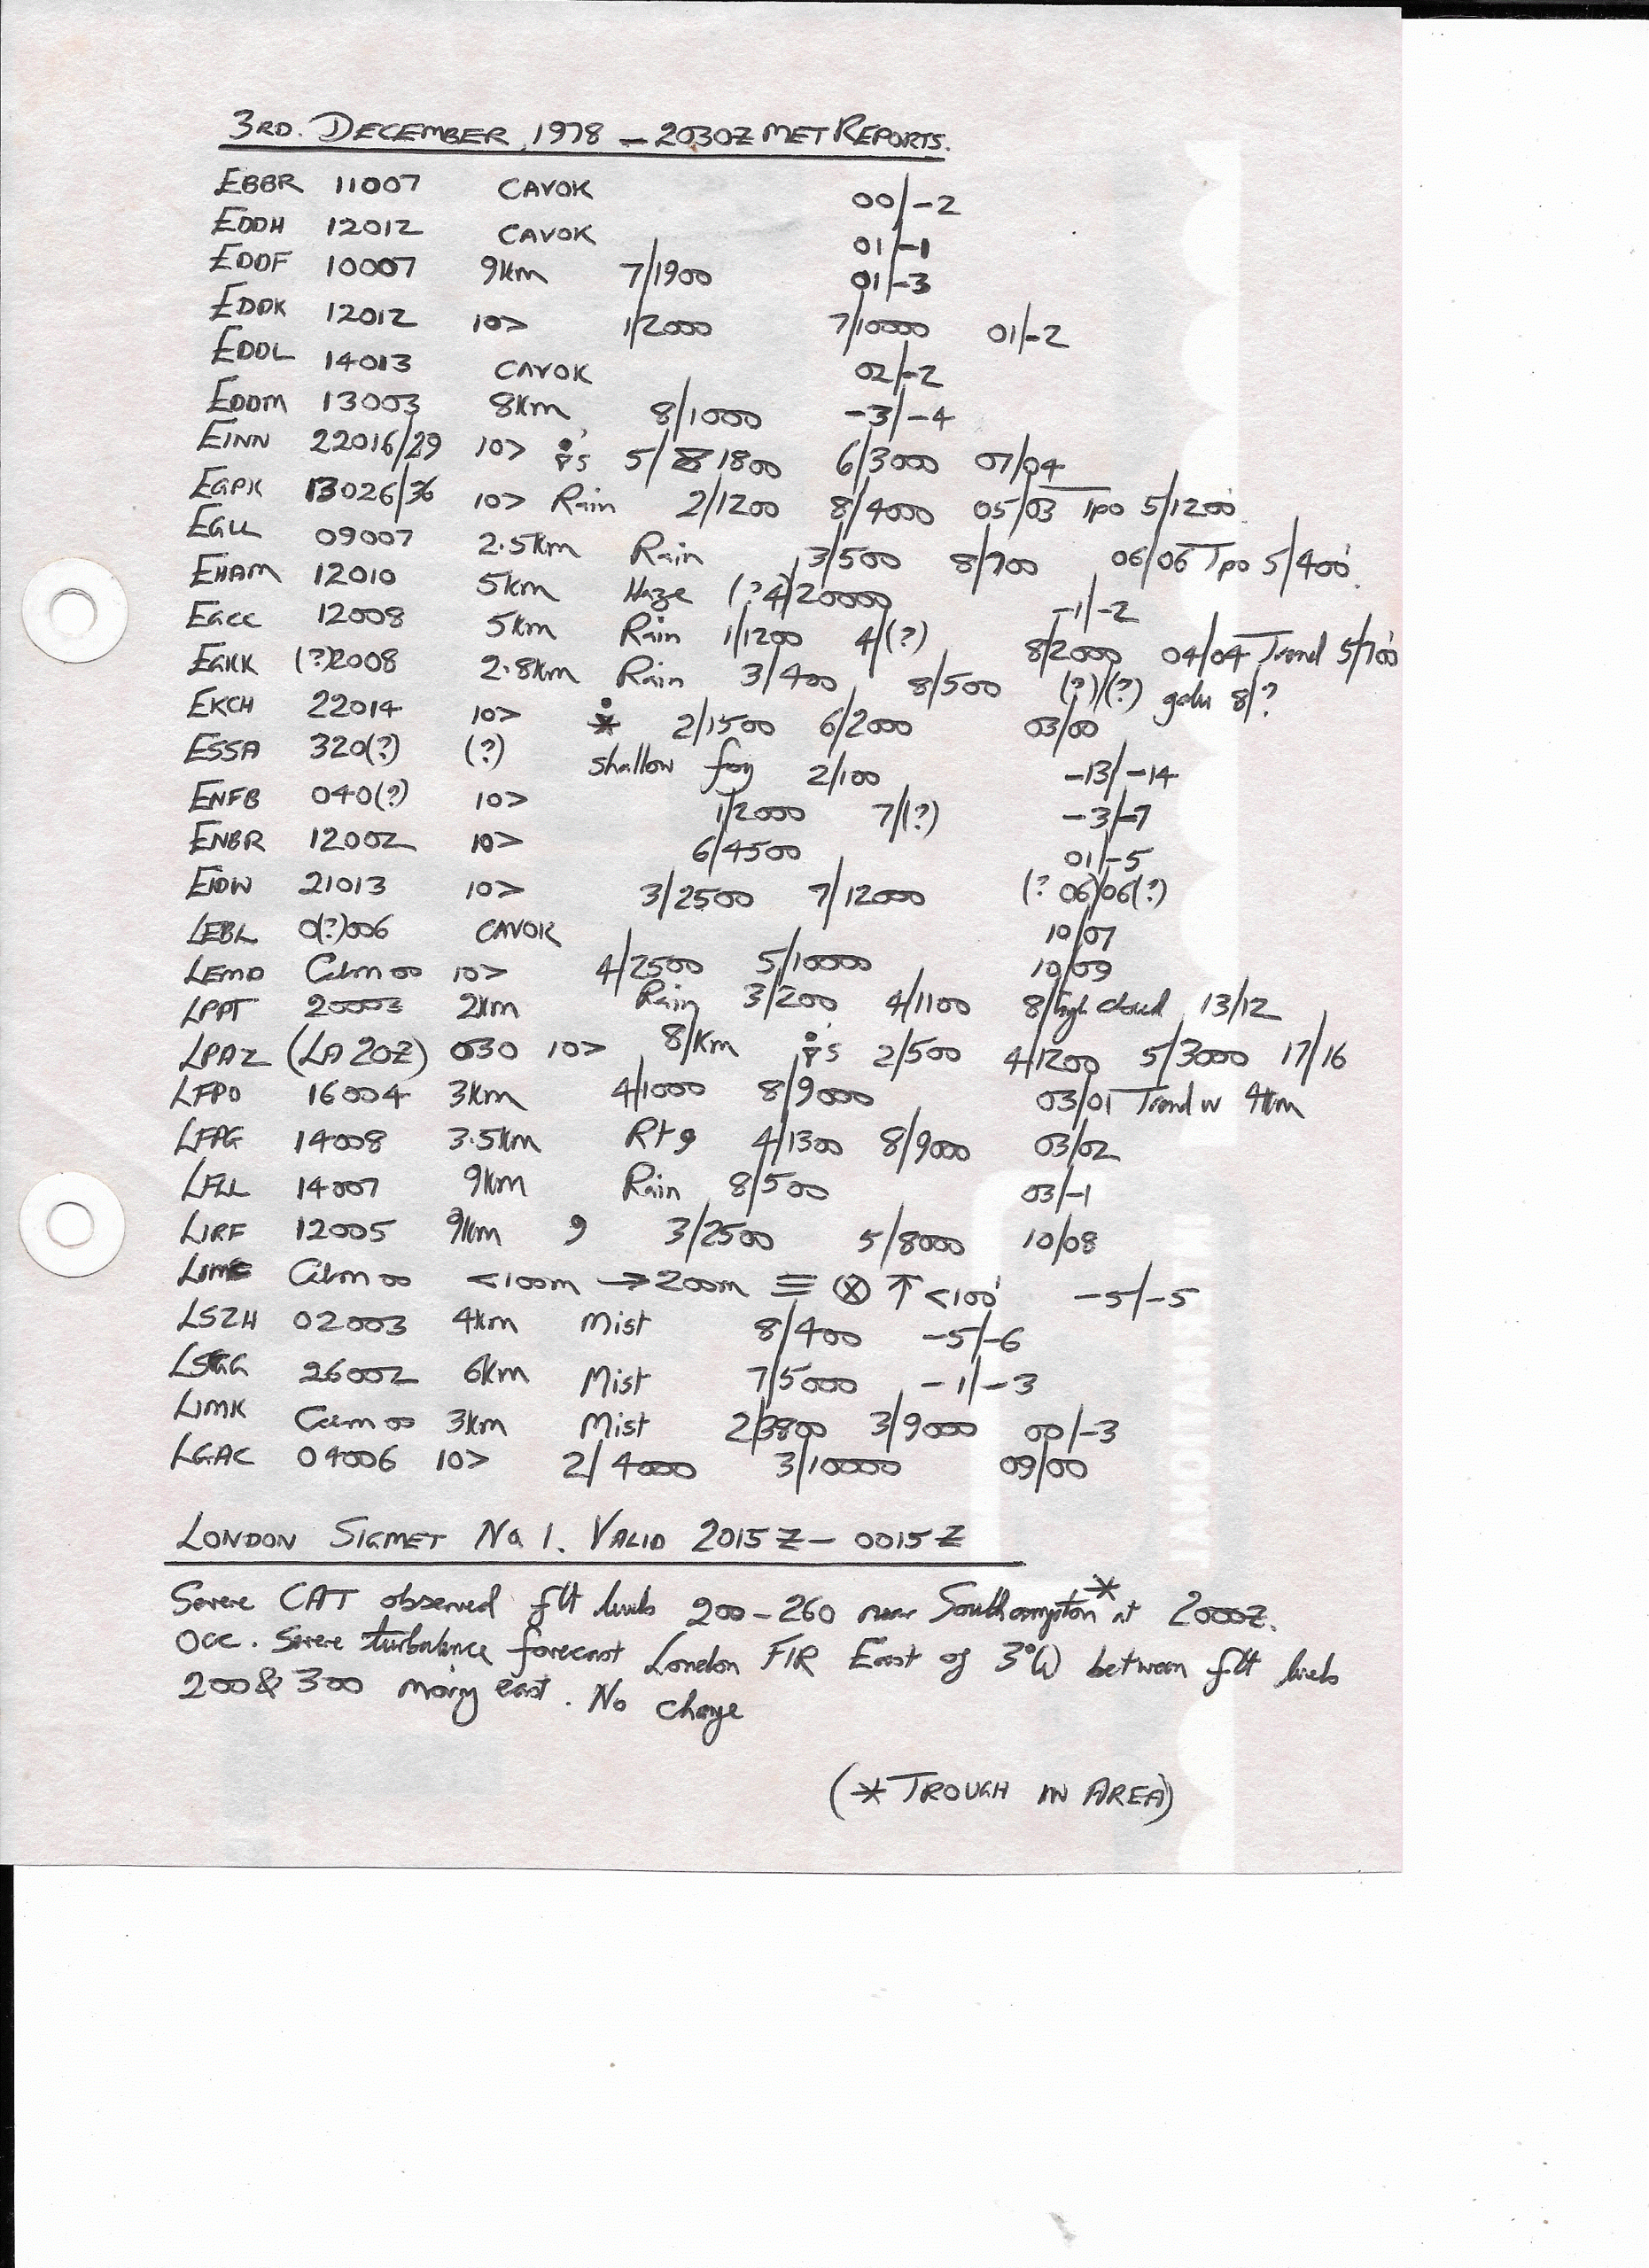 3RD. DECEMBER 1978 — 2030Z MET REPORTS.
EBBR 11007 CAVOK 00/-2
EDDH 12012 CAVOK 01/-1
EDDF 10007 9km 7/1900 01/-3
EDDK 12012 10> 1/2000 7/10000 01/-2
EDDL 14013 CAVOK 02/-2
EDDM 13003 8km 8/1000 -3/-4
EINN 22016/29 10> 5/1800 6/3000 07/04
EGPK 13026/36 10> Rain 2/1200 8/4000 05/03 Tpo 5/1200'
EGLL 09007 2.5km Rain 3/500 8/700 06/06 Tpo 5/400'
EHAM 12010 5km Haze (?4)/20000 -1/-2
EGCC 12008 5km Rain 1/1200 4/(?) 8/2000 04/04 Trend 5/700'
EGKK (?)2008 2.8km Rain 3/400 8/500 (?)/(?) gadu 8/?
EKCH 22014 10> 2/1500 6/2000 03/00
ESSA 320(?) (?) shallow fog 2/100 -13/-14
ENFB 040(?) 10> 1/2000 7/(?) -3/-7
ENBR 12002 10> 6/4500 01/-5
EIDW 21013 10> 3/2500 7/12000 (? 06)/06(?)
LEBL 0(?)006 CAVOK 10/07
LEMD Calm 00 10> 4/2500 5/10000 10/09
LPPT 20003 2km Rain 3/200 4/1100 8/high cloud 13/12
LPAZ (LA 20Z) 030 10> 8/km 2/500 4/1200 5/3000 17/16
LFPO 16004 3km 4/1000 8/9000 03/01 Trend w 4km
LFPG 14008 3.5km R+9 4/1300 8/9000 03/02
LFLL 14007 9km Rain 8/500 03/-1
LIRF 12005 9km 9 3/2500 5/8000 10/08
LIMC Calm 00 <100m →200m ≡ ⊗ ↑ <100' -5/-5
LSZH 02003 4km Mist 8/400 -5/-6
LSGG 26002 6km Mist 7/5000 -1/-3
LIMK Calm 00 3km Mist 2/3800 3/9000 00/-3
LGAC 04006 10> 2/4000 3/10000 09/00
LONDON SIGMET No 1. VALID 2015Z — 0015Z
Severe CAT observed flt levels 200-260 near Southampton* at 2000Z.
Occ. Severe turbulence forecast London FIR East of 3°W between flt levels
200 & 300 moving east. No change
(* TROUGH IN AREA)